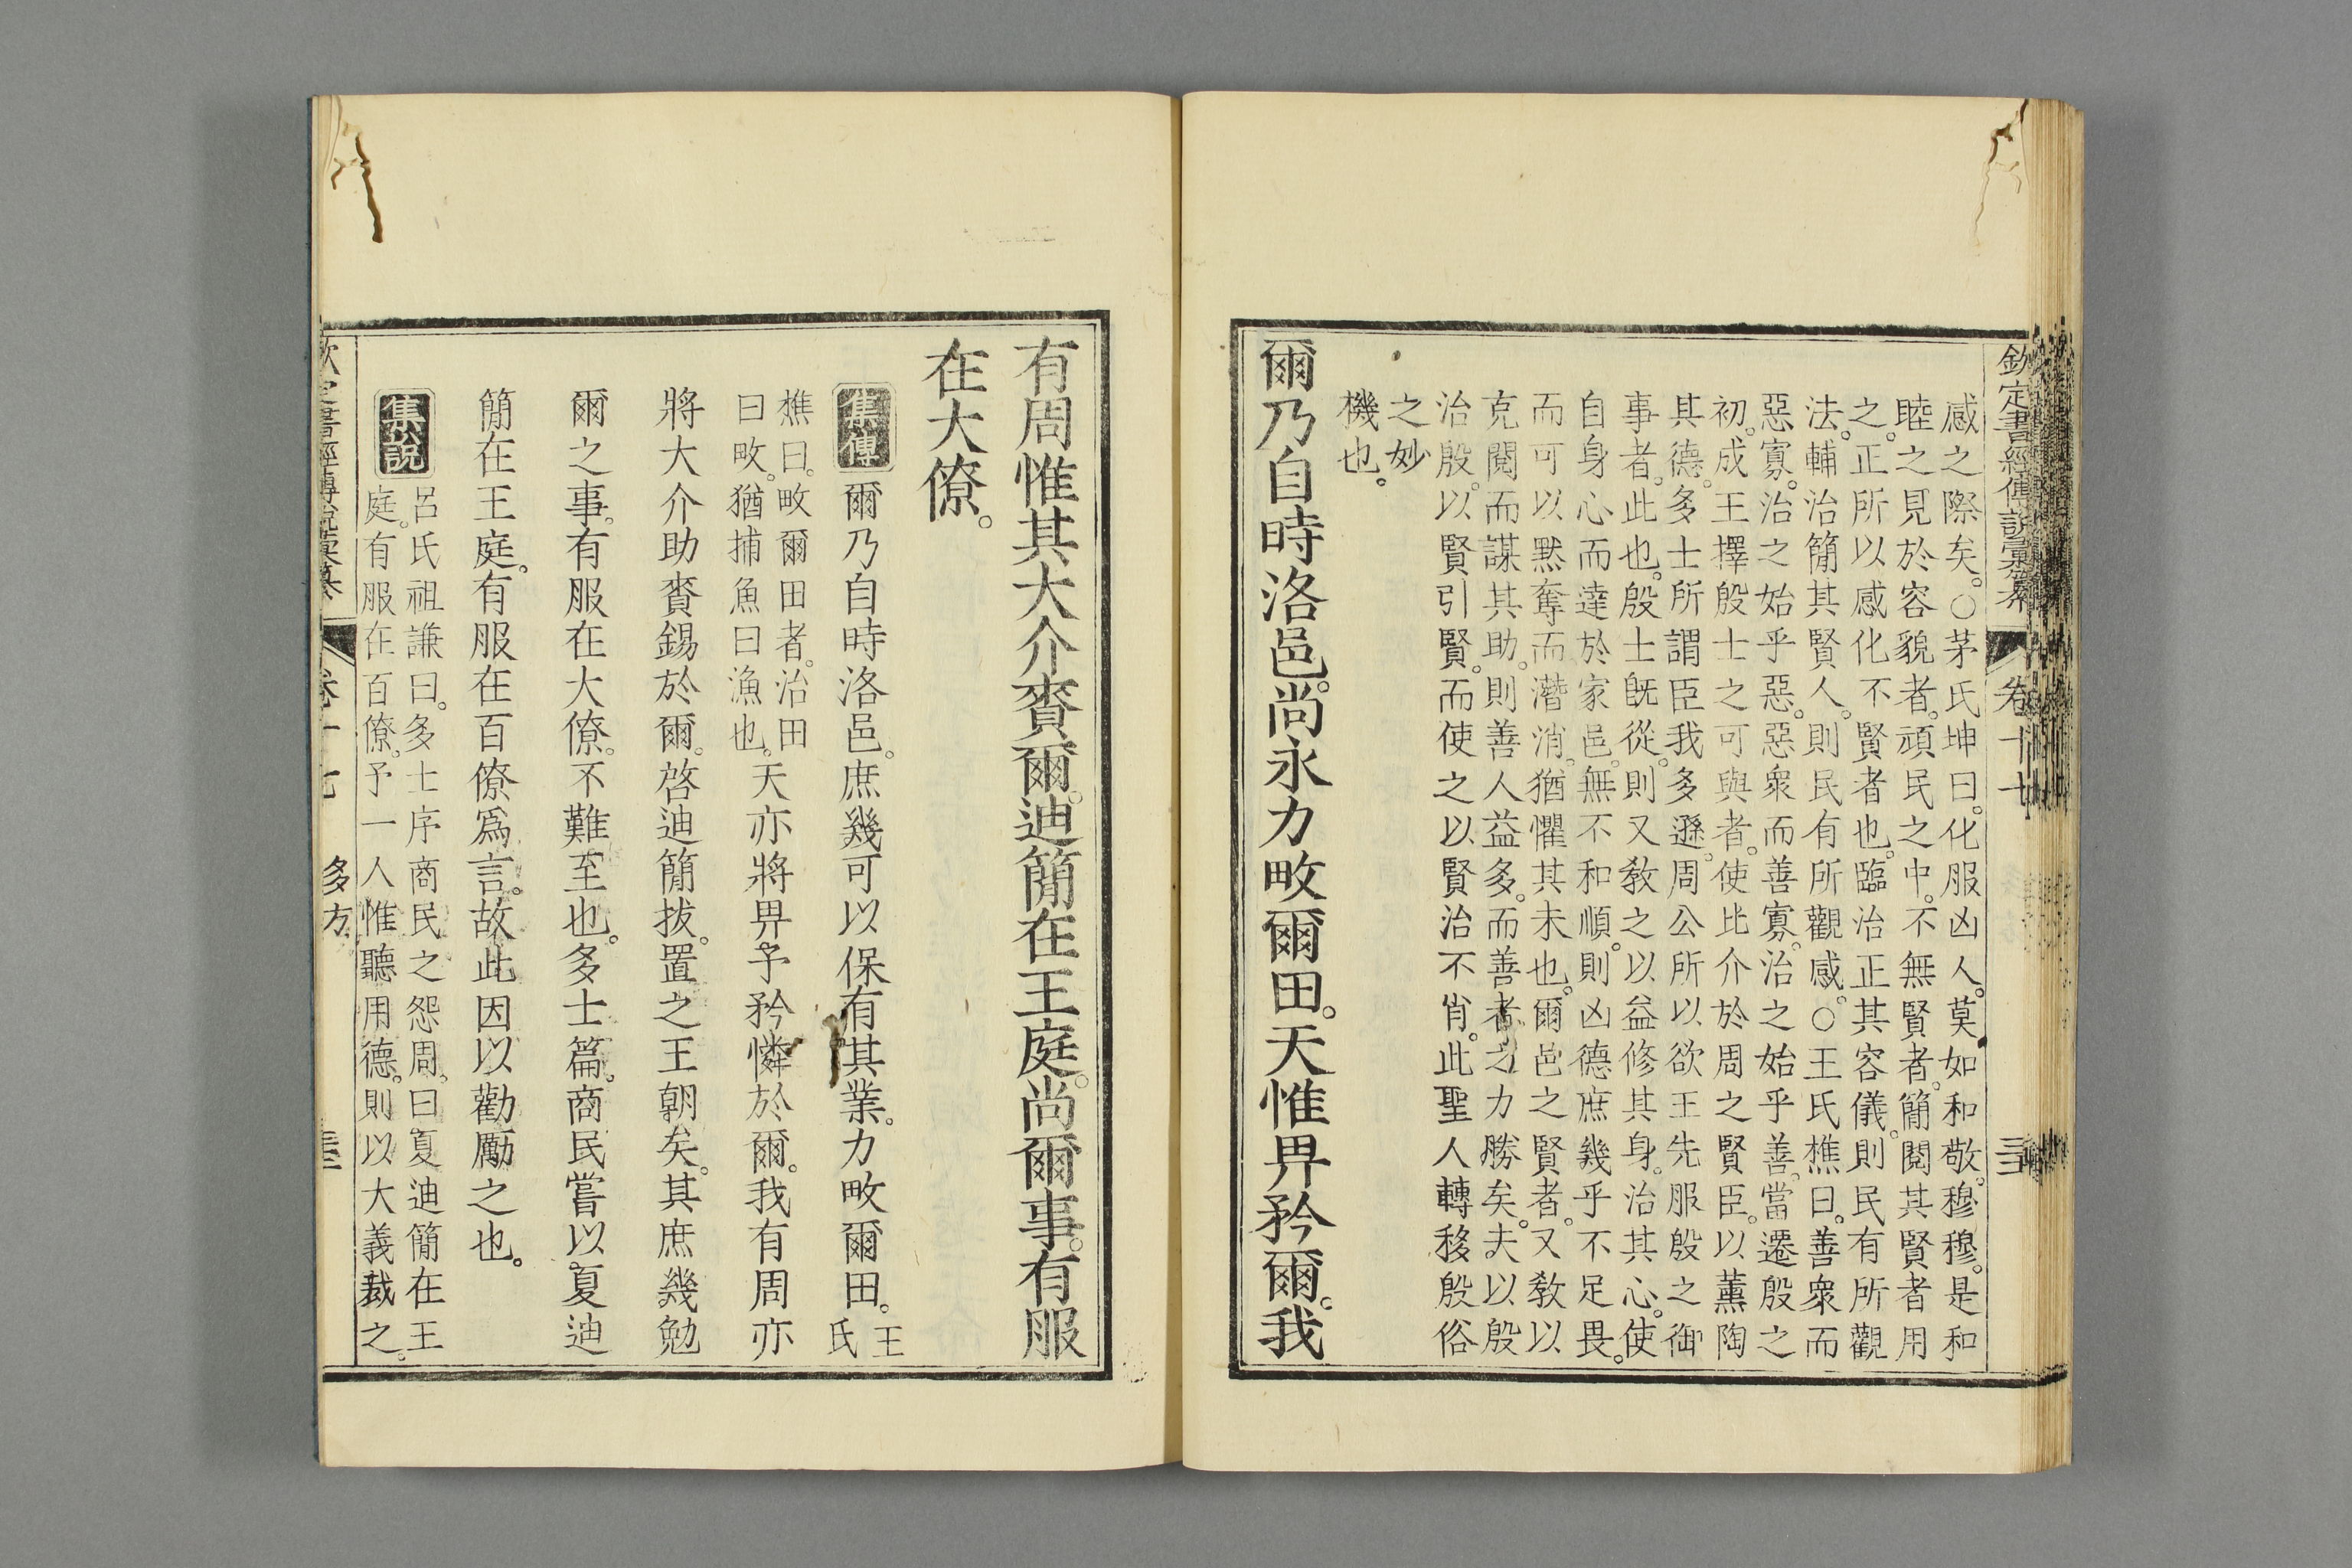 欽定書經傳說彙纂 卷十七
感之際矣。○茅氏坤曰。化服凶人。莫如和敬。穆穆。是和
睦之見於容貌者。頑民之中。不無賢者。簡閱其賢者用
之。正所以感化不賢者也。臨治正其容儀。則民有所觀
法。輔治簡其賢人。則民有所觀感。○王氏樵曰。善衆而
惡寡。治之始乎惡。惡衆而善寡。治之始乎善。當遷殷之
初。成王擇殷士之可與者。使比介於周之賢臣。以薰陶
其德。多士所謂臣我多遜。周公所以欲王先服殷之御
事者。此也。殷士旣從。則又敎之以益修其身。治其心。使
自身心而達於家邑。無不和順。則凶德庶幾乎不足畏。
而可以默奪而潛消。猶懼其未也。爾邑之賢者。又敎以
克閱而謀其助。則善人益多。而善者之力勝矣。夫以殷
治殷。以賢引賢。而使之以賢治不肖。此聖人轉移殷俗
之妙
機也。
爾乃自時洛邑。尚永力畋爾田。天惟畀矜爾。我
有周惟其大介賚爾。迪簡在王庭。尚爾事。有服
在大僚。
集傳 爾乃自時洛邑。庶幾可以保有其業。力畋爾田。王氏
樵曰。畋爾田者。治田
曰畋。猶捕魚曰漁也。天亦將畀予矜憐於爾。我有周亦
將大介助賚錫於爾。啓迪簡拔。置之王朝矣。其庶幾勉
爾之事。有服在大僚。不難至也。多士篇。商民嘗以夏迪
簡在王庭。有服在百僚爲言。故此因以勸勵之也。
集說 呂氏祖謙曰。多士序商民之怨周。曰夏迪簡在王
庭。有服在百僚。予一人惟聽用德。則以大義裁之。
書經傳說彙纂 卷十七 多方